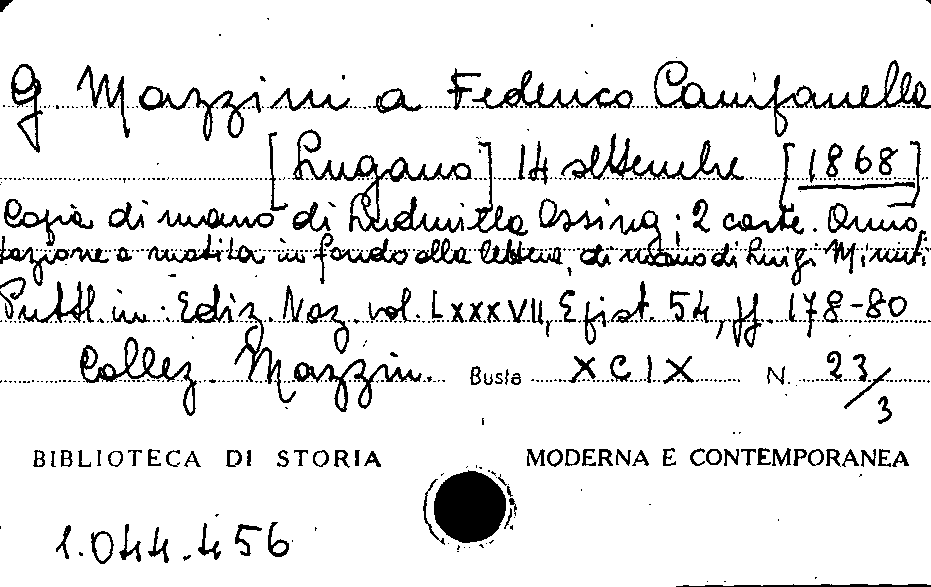 G. Mazzini a Federico Campanella
[Lugano] 14 settembre [1868]
Copia di mano di Ludmilla Assing; 2 carte. Anno,
tazione a matita in fondo alla lettera, di mano di Luigi Minuti
Pubbl. in: Ediz. Naz. vol. LXXXVII, Epist. 54, pp. 178-80
Collez. Mazzin. Busta XCIX N. 23/3
BIBLIOTECA DI STORIA MODERNA E CONTEMPORANEA
1.044.456